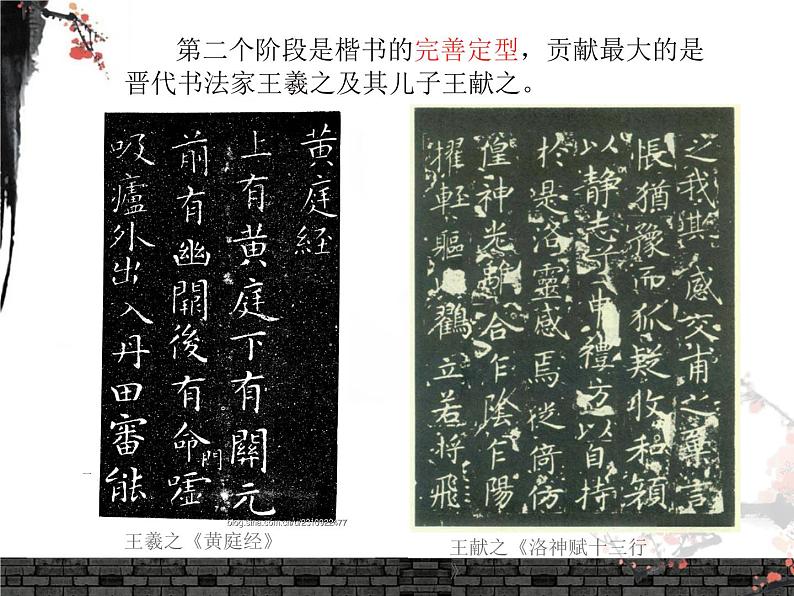 第二个阶段是楷书的完善定型，贡献最大的是
晋代书法家王羲之及其儿子王献之。
黄庭经
上有黄庭下有關元
前有幽闕後有命門
噓吸廬外出入丹田審能
之我其感交甫之棄言
悵猶豫而狐疑收和顏
以静志了申禮方以自持
於是洛靈感焉徙倚仿
偟神光離合乍陰乍陽
擢輕軀以鶴立若將飛
blog.sina.com.cn/u/2310922477
王羲之《黄庭经》
王献之《洛神赋十三行